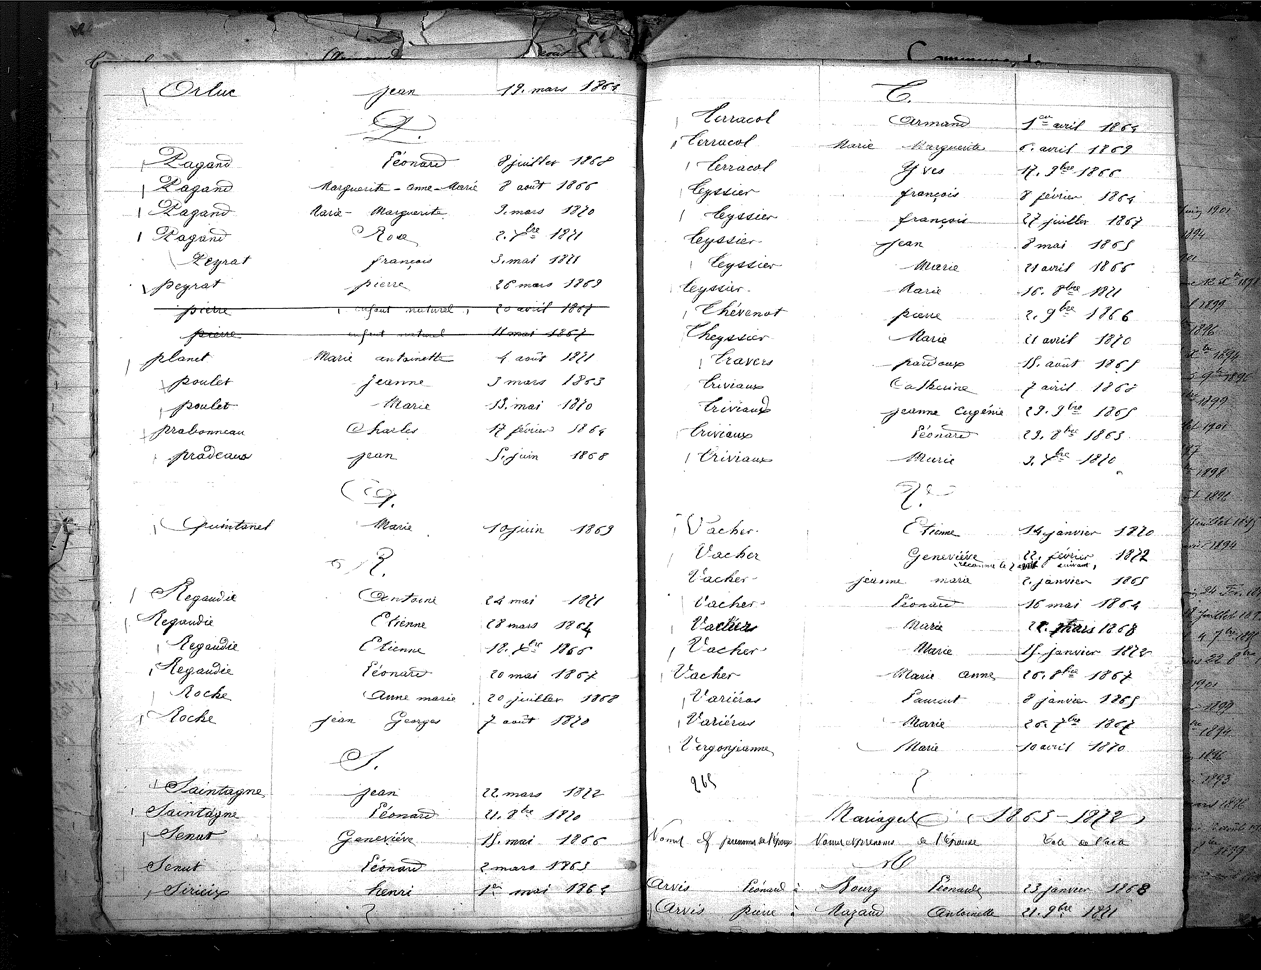 Orluc jean 19. mars 1864
P.
Pagand Léonard 8 juillet 1868
Pagand Marguerite-anne-Marie 8 août 1866
Pagand Marie-Marguerite 3. mars 1870
Pagand Rose 2. 7bre 1871
Peyrat françois 3. mai 1871
peyrat pierre 26 mars 1869
pierre (enfant naturel) 20 avril 1867
pierre enfant naturel 11 mai 1867
planet Marie antoinette 4 août 1871
poulet jeanne 3 mars 1863
poulet Marie 13. mai 1870
prabonneau Charles 17 février 1864
pradeaux jean 5. juin 1868
Q.
Quintanel Marie 10 juin 1869
R.
Regaudie Antoine 24 mai 1871
Regaudie Etienne 28 mars 1864
Regaudie Etienne 12. Xbre 1866
Regaudie Léonard 20 mai 1867
Roche Anne marie 20 juillet 1868
Roche jean Georges 7 août 1870
S.
Saintagne jean 22 mars 1872
Saintagne Léonard 21. 8bre 1870
Senut Geneviève 15. mai 1866
Senut Léonard 2 mars 1863
Sirieix henri 1er mai 1864
T.
Terracol Armand 1er avril 1864
Terracol Marie Marguerite 6. avril 1869
Terracol Yves 17. 9bre 1866
Teyssier françois 8 février 1864
Teyssier françois 27 juillet 1867
Teyssier jean 8 mai 1865
Teyssier Marie 21 avril 1866
Teyssier Marie 16. 8bre 1871
Thévenot pierre 2. 9bre 1866
Theyssier Marie 21 avril 1870
Travers pardoux 15. août 1865
Triviaux Catherine 7 avril 1868
Triviaux jeanne Eugénie 29. 9bre 1865
Triviaux Léonard 23. 8bre 1863
Triviaux Marie 3. Xbre 1870
V.
Vacher Etienne 14 janvier 1870
Vacher Geneviève 22. février 1872
(reconnue le 7 avril suivant)
Vacher jeanne marie 2. janvier 1865
Vacher Léonard 16 mai 1864
Vacher Marie mars 1868
Vacher Marie 15. janvier 1872
Vacher Marie anne 26. 8bre 1867
Variéras Laurent 8 janvier 1865
Variéras Marie 26. 7bre 1867
Vergonjeanne Marie 10 avril 1870
265
Mariages (1863-1872)
Noms & prénoms de l'époux Noms et prénoms de l'épouse Date de l'acte
A
Arvis Léonard à Bourg Léonarde 23 janvier 1868
Arvis pierre à Mazaud Antoinette 21. 9bre 1871